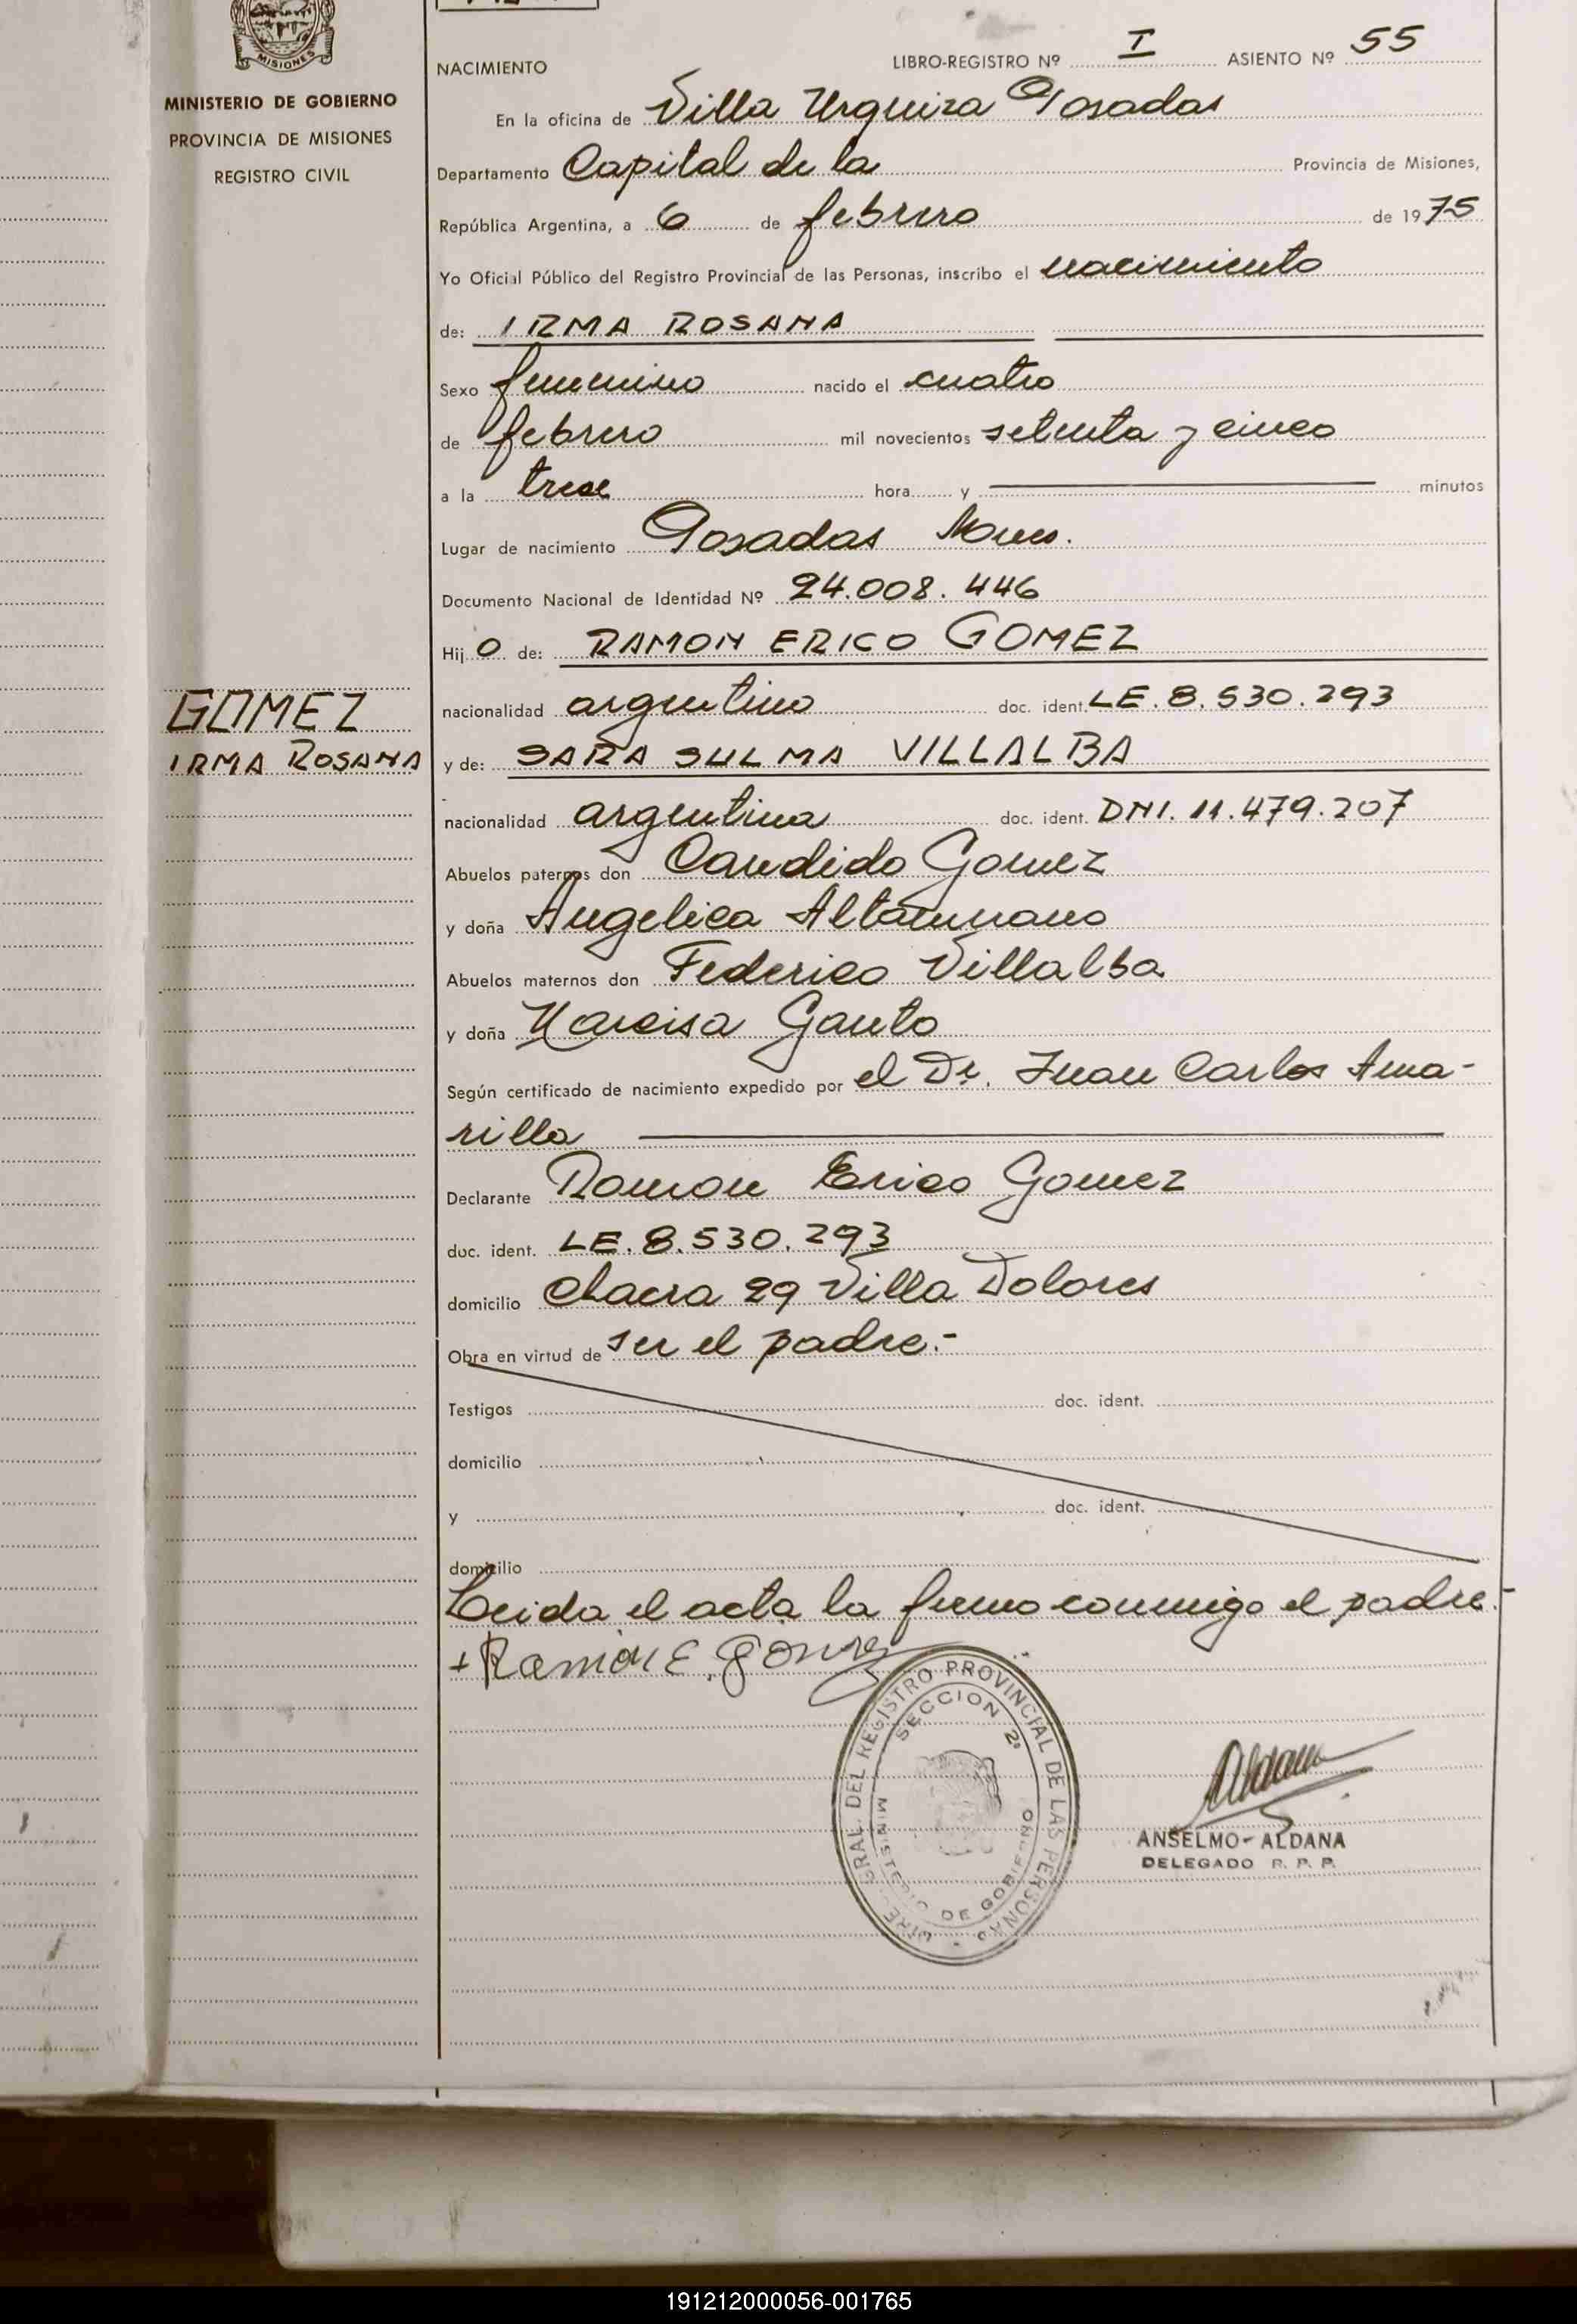 MISIONES
MINISTERIO DE GOBIERNO
PROVINCIA DE MISIONES
REGISTRO CIVIL
GOMEZ
IRMA ROSANA
NACIMIENTO LIBRO-REGISTRO Nº I ASIENTO Nº 55
En la oficina de Villa Urquiza Posadas
Departamento Capital de la Provincia de Misiones,
República Argentina, a 6 de febrero de 1975
Yo Oficial Público del Registro Provincial de las Personas, inscribo el nacimiento
de: IRMA ROSANA
Sexo femenino nacido el cuatro
de febrero mil novecientos setenta y cinco
a la trece hora y minutos
Lugar de nacimiento Posadas
Documento Nacional de Identidad Nº 24.008.446
Hij o de: RAMON ERICO GOMEZ
nacionalidad argentino doc. ident. LE.8.530.293
y de: SARA SULMA VILLALBA
nacionalidad argentina doc. ident. DNI. 11.479.207
Abuelos paternos don Candido Gomez
y doña Angelica Altamirano
Abuelos maternos don Federico Villalba
y doña Narcisa Gauto
Según certificado de nacimiento expedido por el Dr. Juan Carlos Ama-
rilla
Declarante Ramon Erico Gomez
doc. ident. LE.8.530.293
domicilio Chacra 29 Villa Dolores
Obra en virtud de ser el padre.-
Testigos doc. ident.
domicilio
y doc. ident.
domicilio
Leida el acta la firma conmigo el padre.-
+ Ramon E. Gomez
DIRE GRAL. DEL REGISTRO PROVINCIAL DE LAS PERSONAS
SECCION 2ª
MINISTERIO DE GOBIERNO
Aldana
ANSELMO - ALDANA
DELEGADO R. P. P.
191212000056-001765